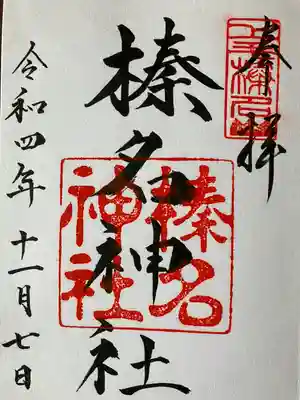 奉拝
榛名神社
榛名
神社
令和四年十一月七日